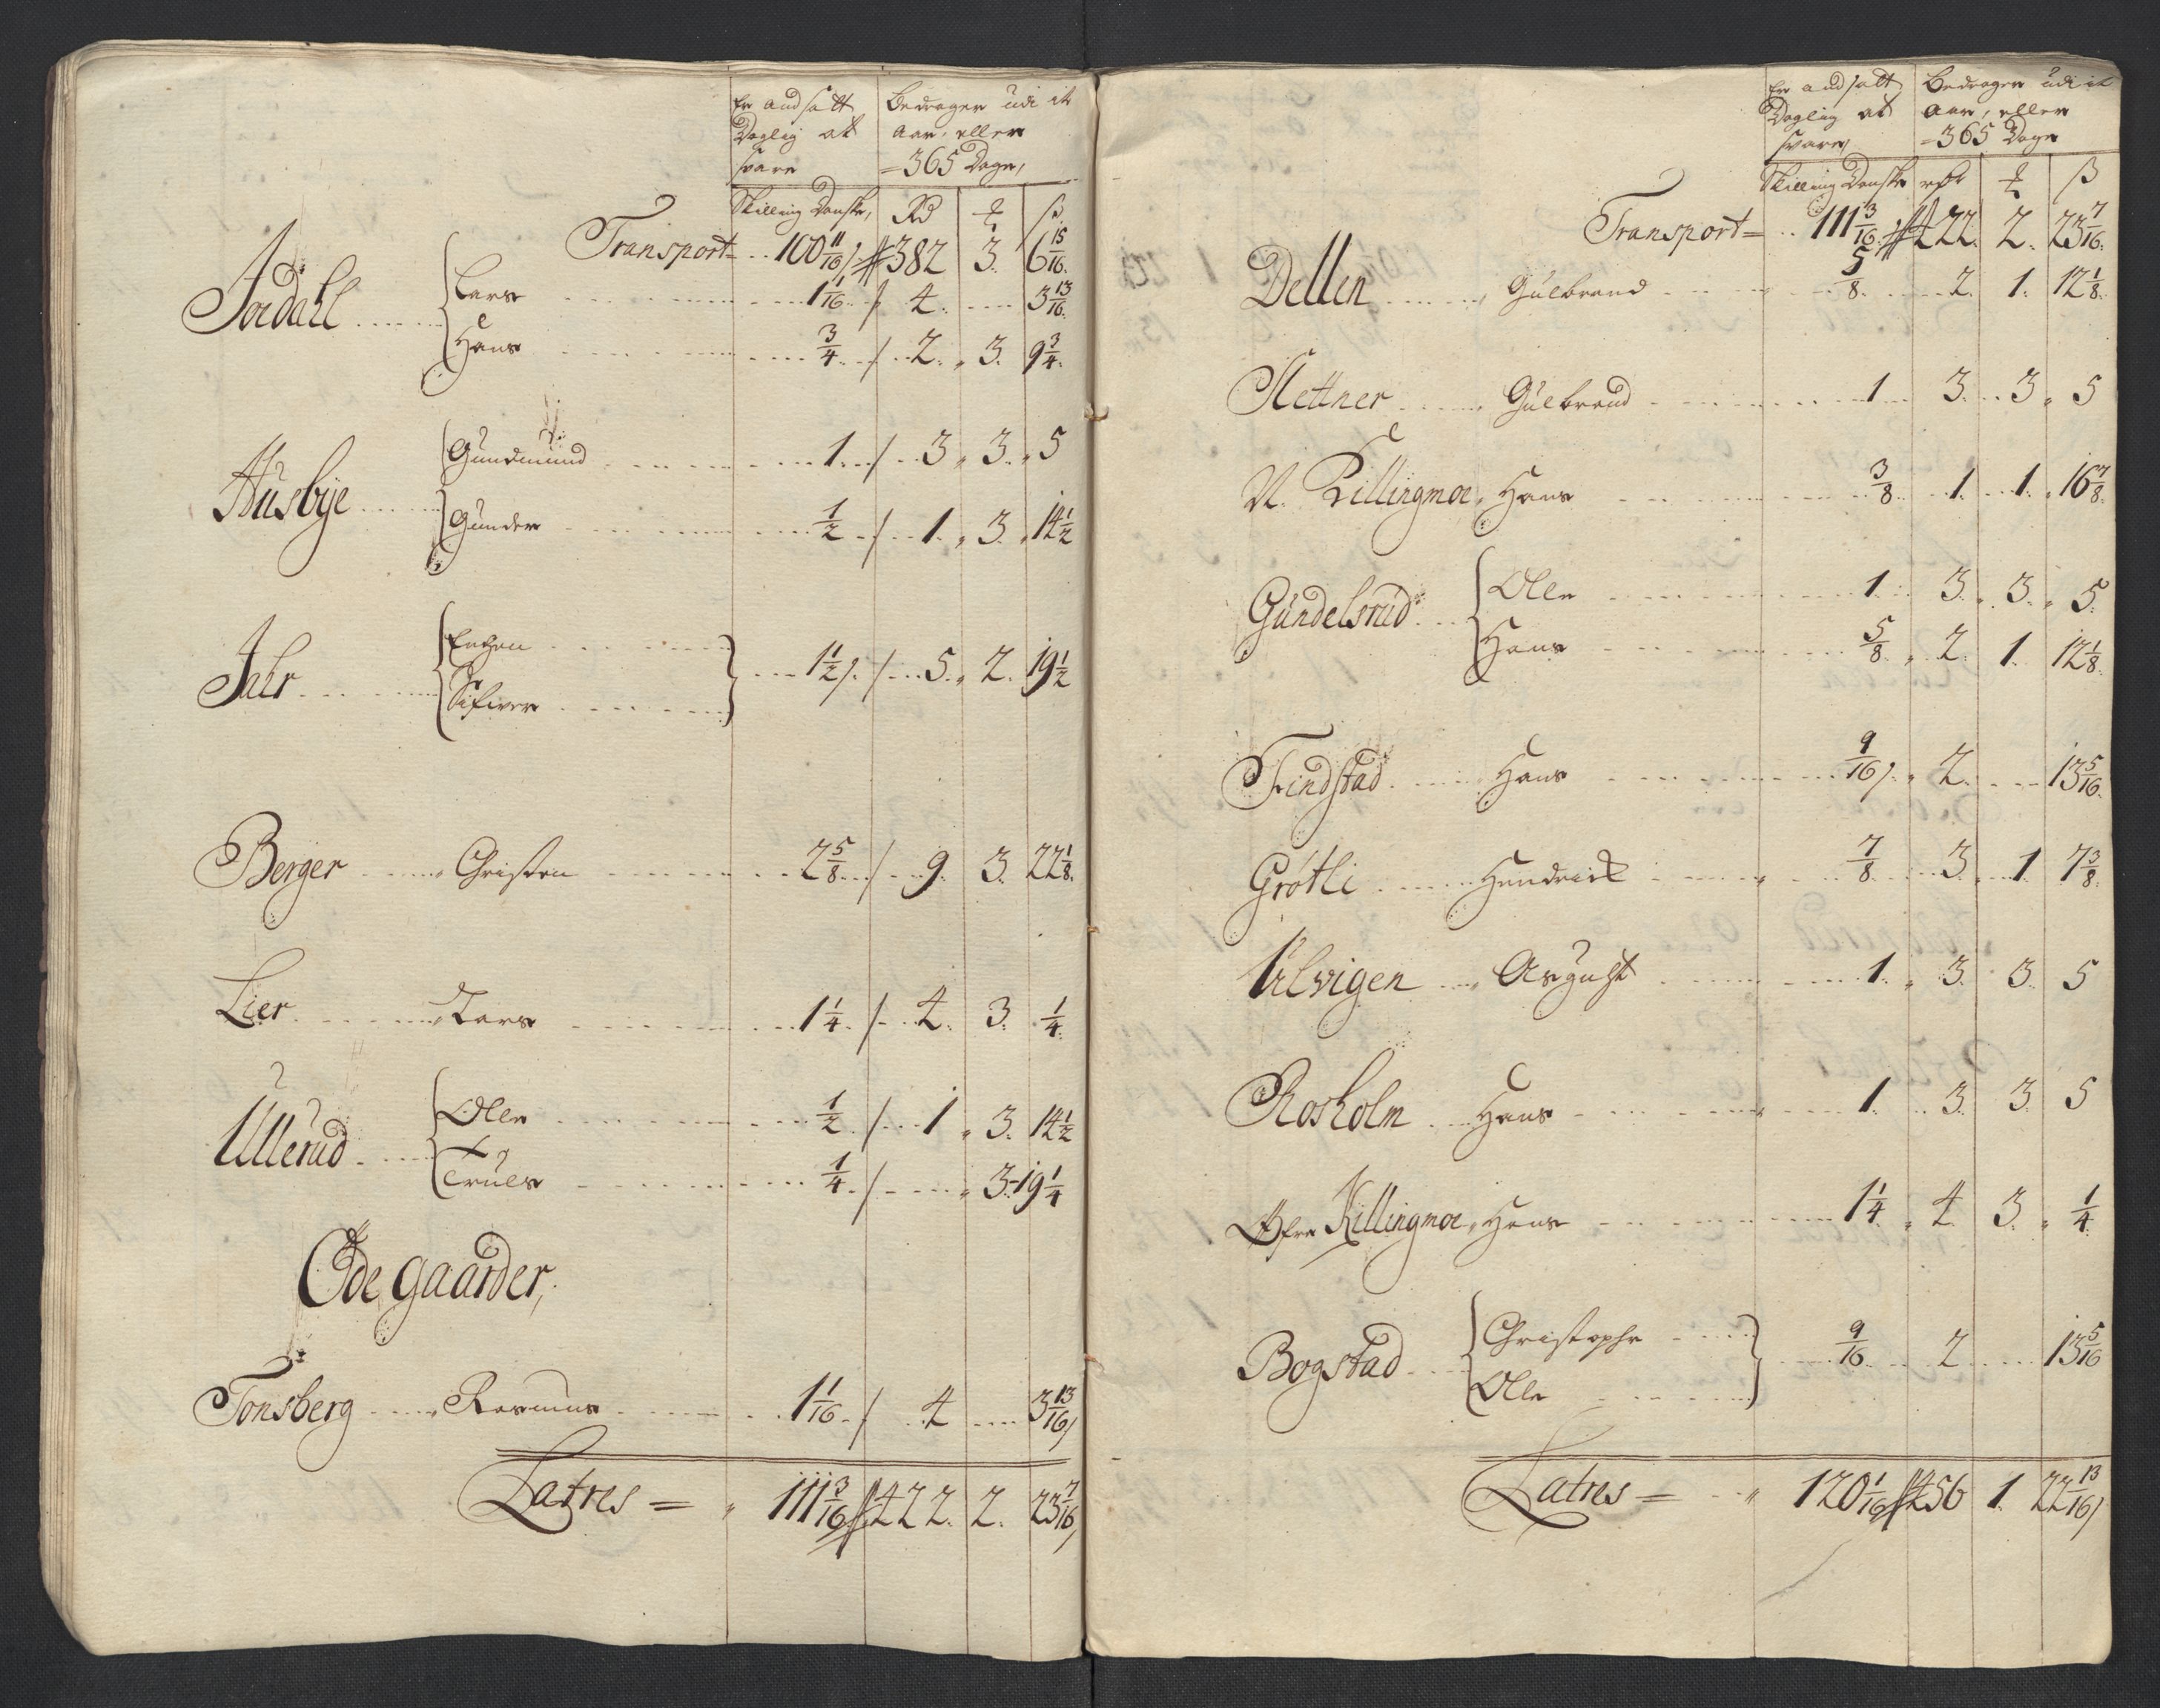 Er andsatt
Daglig at
svare
Bedrager udi it
Aar, eller
=365 Dage,
Skilling Danske, Rd ß
Transport= 100 11/16 382 3. 6 15/16.
Jordahl Lars 1 1/16 4. 3 13/16.
Hans 3/4 2. 3. 9 3/4.
Husbye Gundmund 1. 3 3. 5
Gunder 1/2 1. 3. 14 1/2
Jahr
Sifver 1 1/2 5. 2. 19 1/2
Berger Christen 2 5/8 9. 3. 22 1/8.
Lier Lars 1 1/4 4. 3. 1/4.
Ullerud Ole 1/2 1 3. 14 1/2
Truls 1/4 3. 19 1/4
Øde gaarder,
Tonsberg Rasmus 1 1/16 4 3 13/16
Latres = 111 3/16 422. 2. 23 7/16
Er andsatt
Daglig at
svare,
Bedrager udi it
Aar, eller
=365 Dage
Skilling Danske ß
Transport= 111 3/16 422. 2. 23 7/16.
Dellen Gulbrand 5/8 2. 1. 12 1/8.
Slettner Gulbrand 1 3. 3. 5
N. Killingmoe Hans 3/8 1. 1. 16 7/8.
Gundelsrud Ole 1 3. 3. 5.
Hans 5/8 2. 1. 12 1/8.
Findstad Hans 9/16 2. 13 5/16.
Grøtli Hendrick 7/8 3. 1 7 3/8.
Ulvigen August 1. 3. 3. 5
Rosholm Hans 1. 3. 3. 5
Øfre Killingmoe, Hans 1 1/4 4. 3. 1/4.
Bogstad Christopher
Ole 9/16 2 13 5/16
Latres = 120 1/16 456 1. 22 13/16